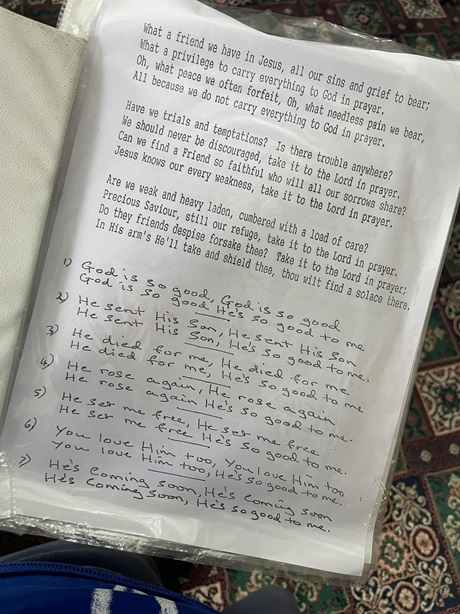 What a friend we have in Jesus, all our sins and grief to bear;
What a privilege to carry everything to God in prayer.
Oh, what peace we often forfeit, Oh, what needless pain we bear,
All because we do not carry everything to God in prayer.
Have we trials and temptations? Is there trouble anywhere?
We should never be discouraged, take it to the Lord in prayer.
Can we find a Friend so faithful who will all our sorrows share?
Jesus knows our every weakness, take it to the Lord in prayer.
Are we weak and heavy laden, cumbered with a load of care?
Precious Saviour, still our refuge, take it to the Lord in prayer.
Do they friends despise forsake thee? Take it to the Lord in prayer;
In His arm's He'll take and shield thee, thou wilt find a solace there.
1) God is so good, God is so good
God is so good He's so good to me
2) He sent His Son, He sent His Son
He sent His Son, He's so good to me.
3) He died for me, He died for me
He died for me, He's so good to me
4) He rose again, He rose again
He rose again He's so good to me
5) He set me free, He set me free
He set me free He's so good to me.
6) You love Him too, You love Him too
You love Him too, He's so good to me.
7) He's coming soon, He's coming soon
He's coming soon, He's so good to me.